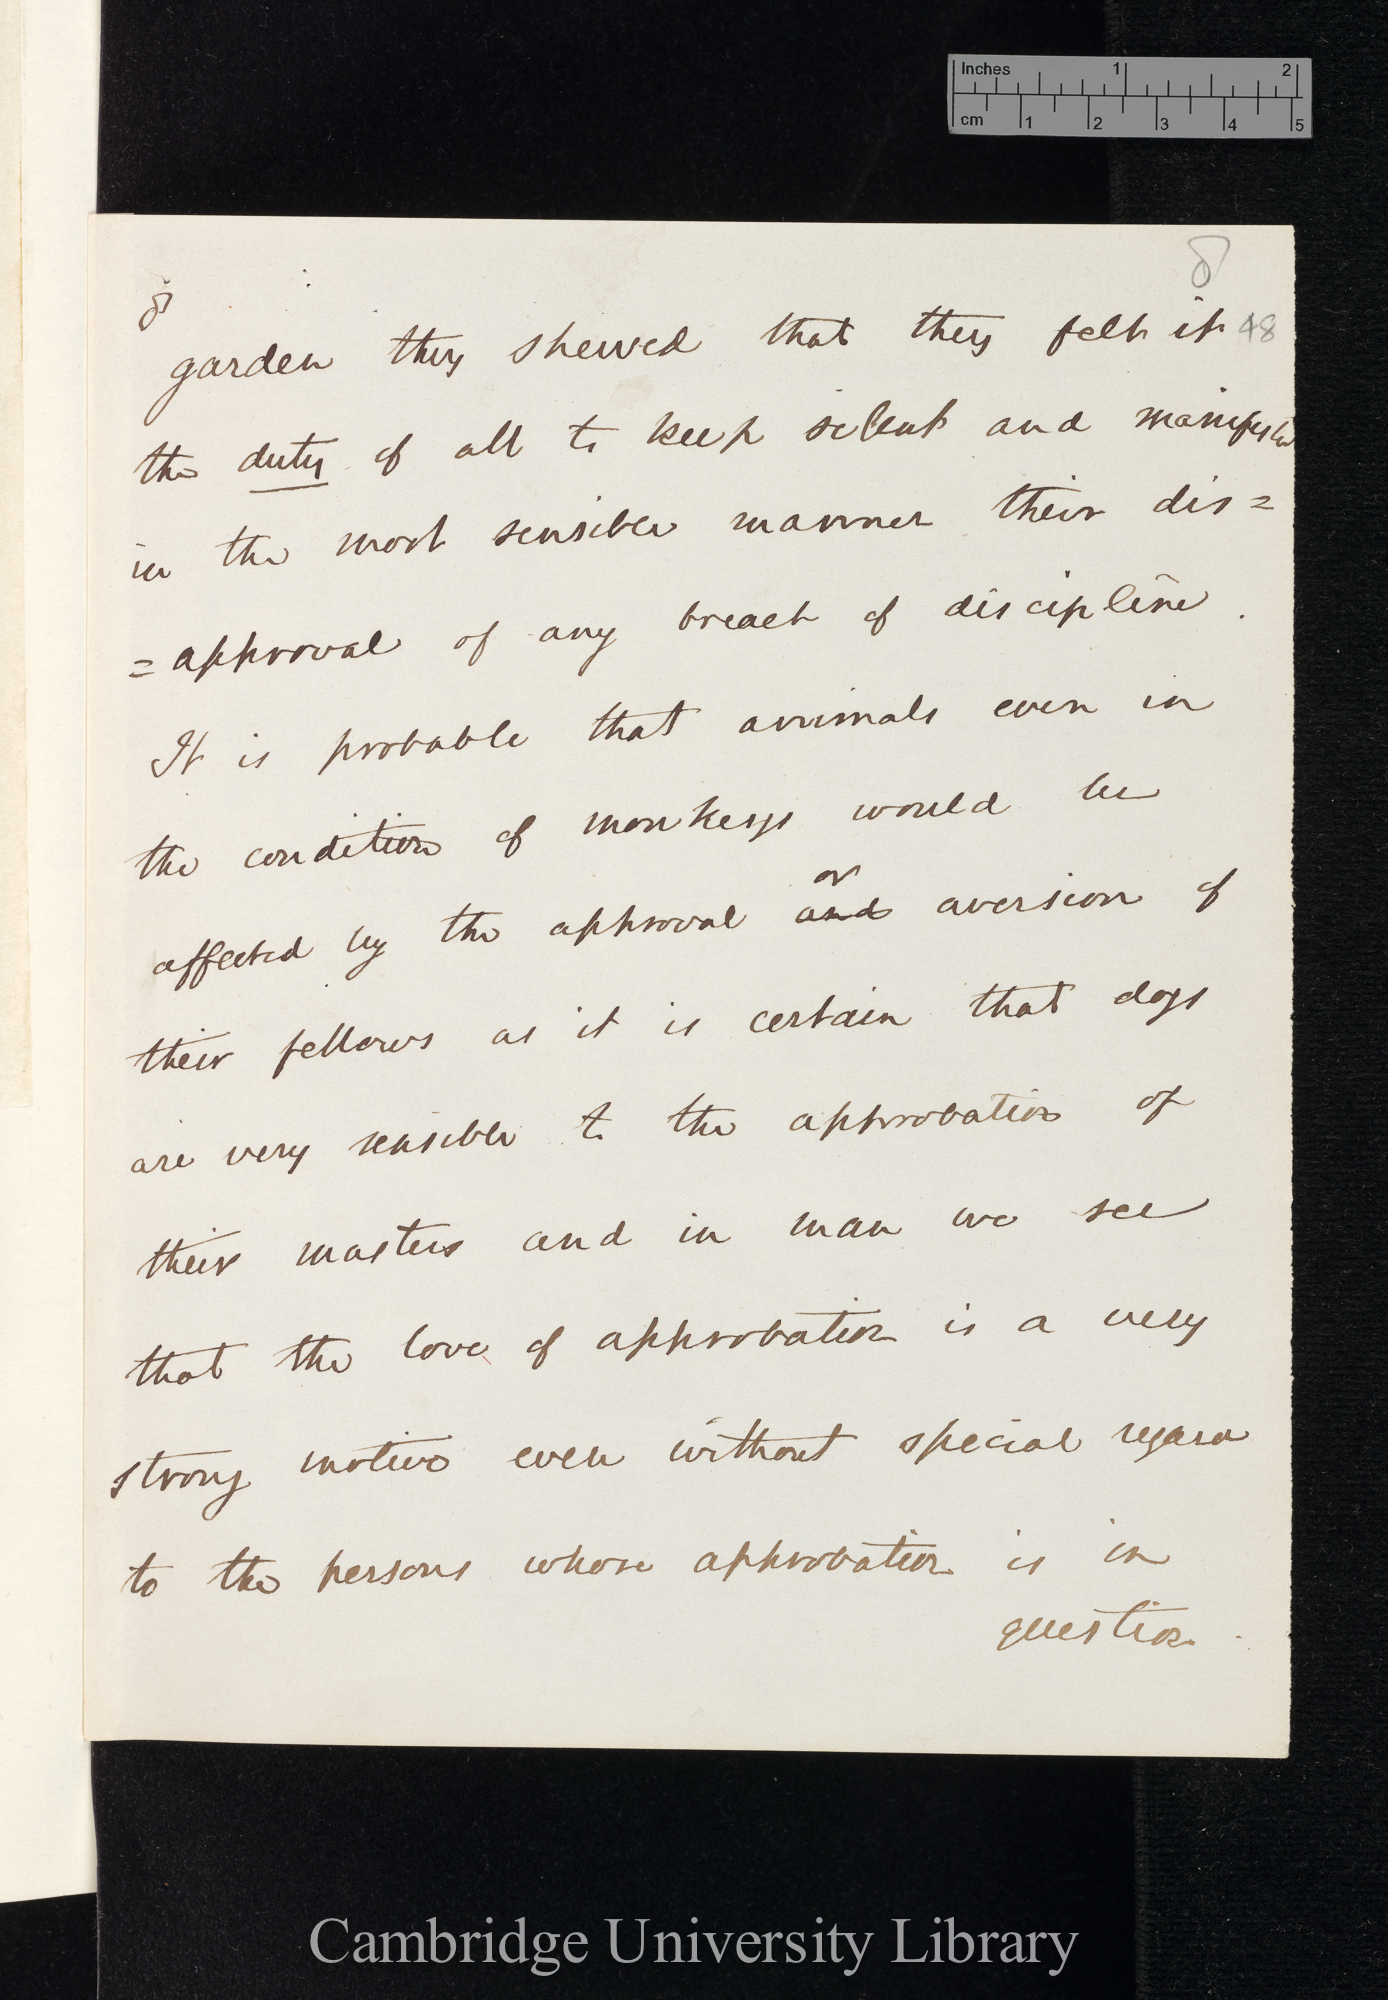 Inches 1 2
cm 1 2 3 4 5
8
8
garden they shewed that they felt it 48
the duty of all to keep silent and manifested
in the most sensible manner their dis=
=approval of any breach of discipline.
It is probable that animals even in
the condition of monkeys would be
or
affected by the approval and aversion of
their fellows as it is certain that dogs
are very sensible to the approbation of
their masters and in man we see
that the love of approbation is a very
strong motive even without special regard
to the persons whose approbation is in
question.
Cambridge University Library